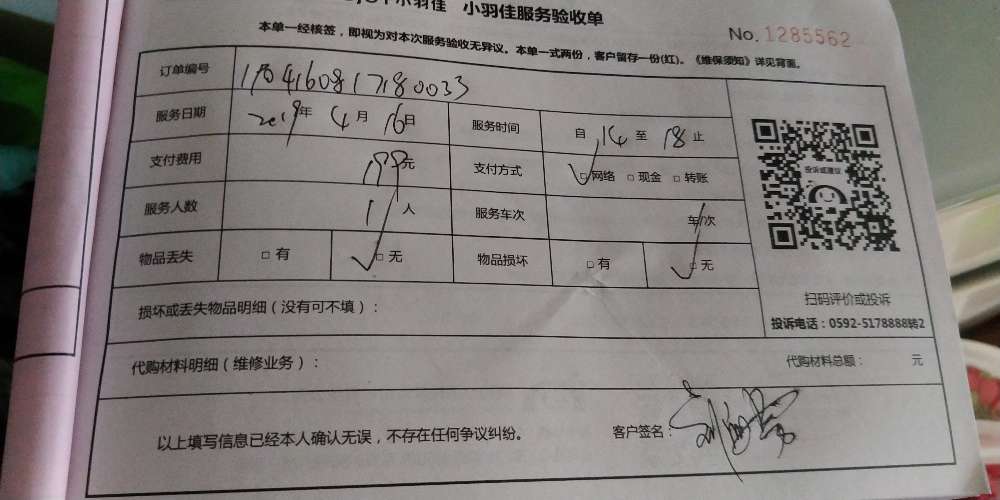 小羽佳 小羽佳服务验收单
No. 1285562
本单一经核签，即视为对本次服务验收无异议。本单一式两份，客户留存一份(红)。《维保须知》详见背面。
订单编号
服务日期 2019年 4月 16日 服务时间 自 14 至 18 止
支付费用 199元 支付方式 ☑网络 □现金 □转账
服务人数 1 人 服务车次 车/次
物品丢失 □有 ☑无 物品损坏 □有 ☑无
投诉或建议
扫码评价或投诉
投诉电话：0592-5178888转2
损坏或丢失物品明细（没有可不填）：
代购材料明细（维修业务）： 代购材料总额： 元
以上填写信息已经本人确认无误，不存在任何争议纠纷。 客户签名：